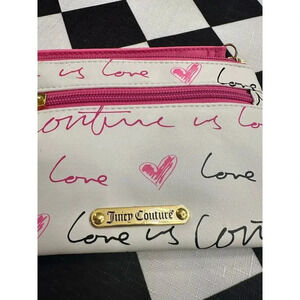 is Love Love
Couture is Lo
Love Love
Juicy Couture
Love is Cou